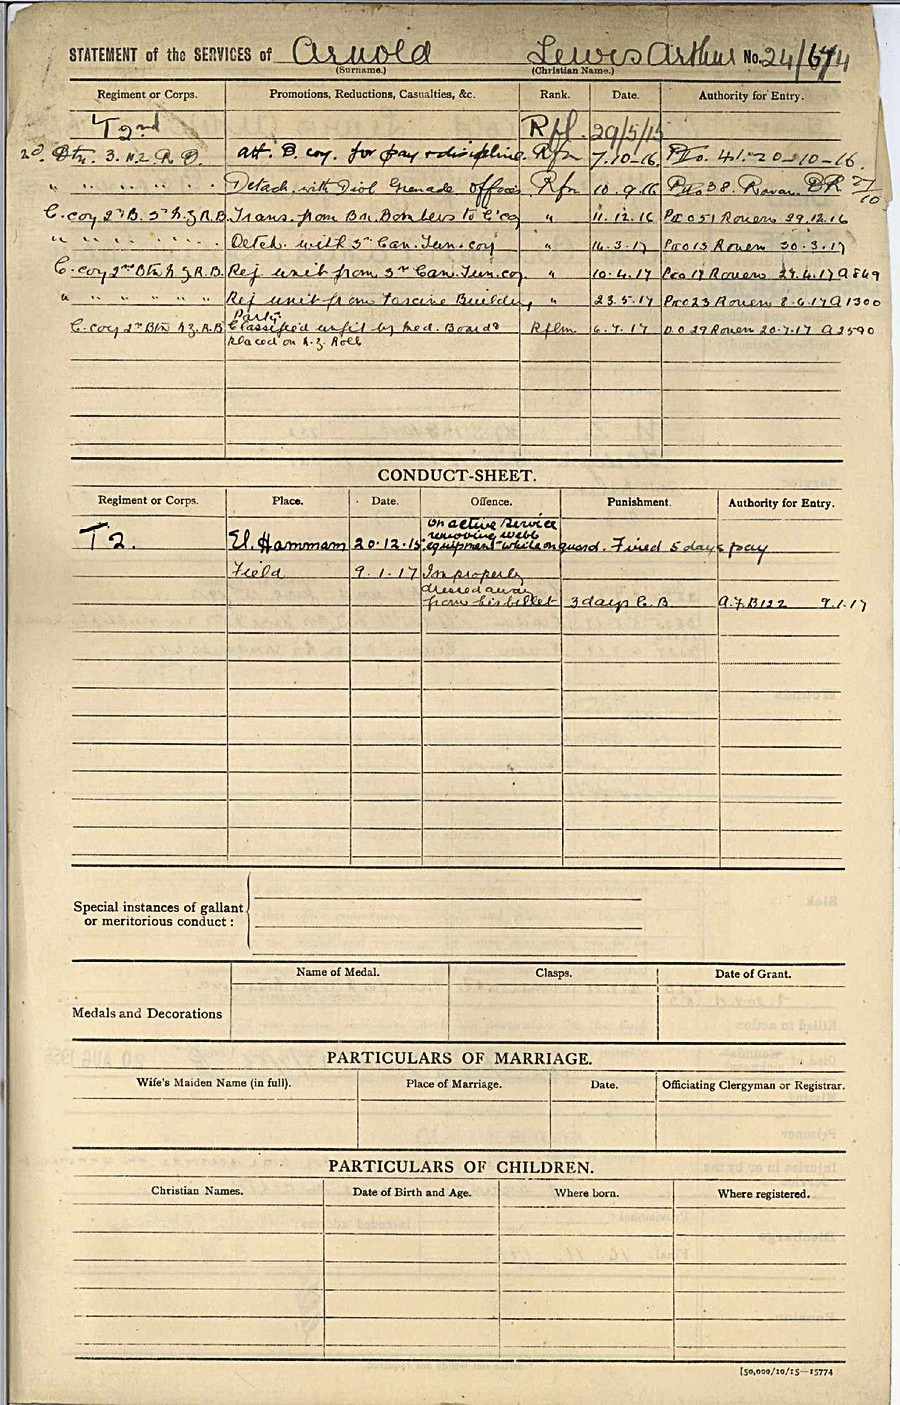 STATEMENT of the SERVICES of Arnold Lewis Arthur No. 24/674
(Surname.) (Christian Name.)
Regiment or Corps. Promotions, Reductions, Casualties, &c. Rank. Date. Authority for Entry.
T 2nd Rfl. 29/5/15
2d Btn. 3. N.Z. R. B. att. D. coy. for pay & discipline. Rfn 7.10-16
" " " " " " Detach. with Divl Grenade officer Rfn 10.9.16
C. coy 2nd B. 3rd N.Z.R.B. Trans. from Bn Bombers to C coy " 11.12.16 Rouen 29.12.16
" " " " " " Detch. with 3rd Can. Tun. coy " 14.3.17 Rouen 30.3.17
C. coy 2nd Btn N.Z.R.B. Rej unit from 3rd Can. Tun. coy " 10.4.17 Rouen 27.4.17 A 849
" " " " " " Rej unit from Fascine Building " 23.5.17 Rouen 8.6.17 A 1300
Party
C. coy 2nd Btn N.Z.R.B Classified unfit by Med. Board & Rflm 6.7.17 29 Rouen 20.7.17 A 2590
placed on N.Z. Roll
CONDUCT-SHEET.
Regiment or Corps. Place. Date. Offence. Punishment. Authority for Entry.
on active service
removing webb
T 2. El. Hammam 20.12.15 equipment while on guard. Fined 5 days pay
Field 9.1.17 Improperly
dressed away
from his billet 3 days C. B. A.F. B122 9.1.17
Special instances of gallant
or meritorious conduct :
Name of Medal. Clasps. Date of Grant.
Medals and Decorations
PARTICULARS OF MARRIAGE.
Wife's Maiden Name (in full). Place of Marriage. Date. Officiating Clergyman or Registrar.
PARTICULARS OF CHILDREN.
Christian Names. Date of Birth and Age. Where born. Where registered.
[50,000/10/15—15774